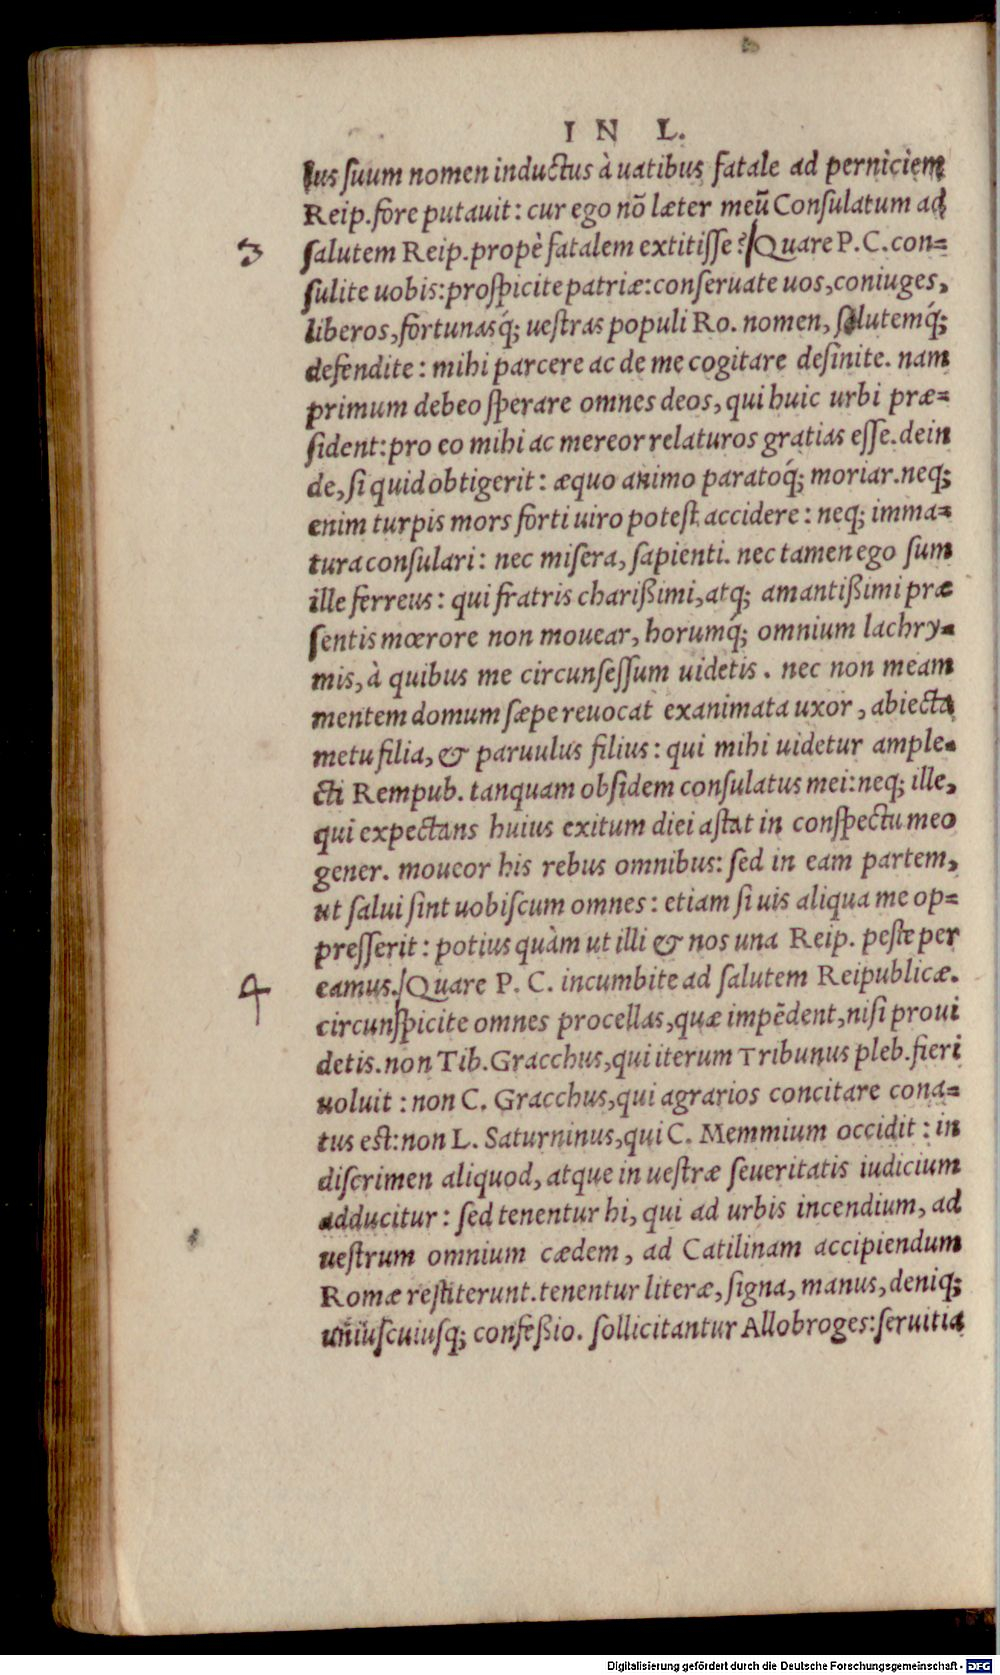 IN L.
lus suum nomen inductus à uatibus fatale ad perniciem
Reip. fore putauit: cur ego nō læter meū Consulatum ad
3 salutem Reip. propè fatalem extitisse?/Quare P. C. con-
sulite uobis: prospicite patriæ: conseruate uos, coniuges,
liberos, fortunasq́; uestras populi Ro. nomen, salutemq́;
defendite: mihi parcere ac de me cogitare desinite. nam
primum debeo sperare omnes deos, qui huic urbi præ-
sident: pro eo mihi ac mereor relaturos gratias esse. dein
de, si quid obtigerit: æquo animo paratoq́; moriar. neq;
enim turpis mors forti uiro potest accidere: neq; imma-
tura consulari: nec misera, sapienti. nec tamen ego sum
ille ferreus: qui fratris charißimi, atq; amantißimi præ
sentis mœrore non mouear, horumq́; omnium lachry-
mis, à quibus me circunsessum uidetis. nec non meam
mentem domum sæpe reuocat exanimata uxor, abiecta
metu filia, & paruulus filius: qui mihi uidetur ample-
cti Rempub. tanquam obsidem consulatus mei: neq; ille,
qui expectans huius exitum diei astat in conspectu meo
gener. moueor his rebus omnibus: sed in eam partem,
ut salui sint uobiscum omnes: etiam si uis aliqua me op-
presserit: potius quàm ut illi & nos una Reip. peste per
4 eamus./Quare P. C. incumbite ad salutem Reipublicæ.
circunspicite omnes procellas, quæ impēdent, nisi proui
detis. non Tib. Gracchus, qui iterum Tribunus pleb. fieri
uoluit: non C. Gracchus, qui agrarios concitare cona-
tus est: non L. Saturninus, qui C. Memmium occidit: in
discrimen aliquod, atque in uestræ seueritatis iudicium
adducitur: sed tenentur hi, qui ad urbis incendium, ad
uestrum omnium cædem, ad Catilinam accipiendum
Romæ restiterunt. tenentur literæ, signa, manus, deniq;
uniuscuiusq; confeßio. sollicitantur Allobroges: seruitia
Digitalisierung gefördert durch die Deutsche Forschungsgemeinschaft - DFG